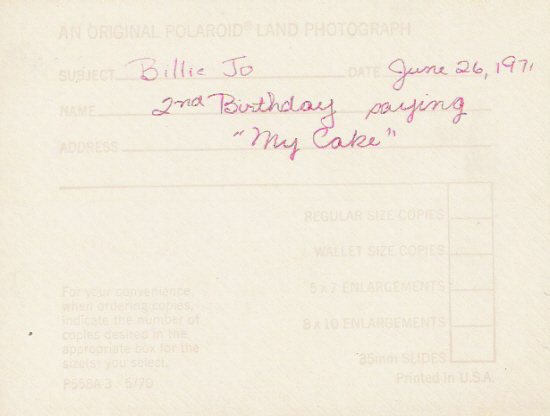 AN ORIGINAL POLAROID® LAND PHOTOGRAPH
SUBJECT Billie Jo DATE June 26, 1971
NAME 2nd Birthday saying
ADDRESS "My Cake"
REGULAR SIZE COPIES
WALLET SIZE COPIES
5 x 7 ENLARGEMENTS
8 x 10 ENLARGEMENTS
35mm SLIDES
For your convenience
when ordering copies,
indicate the number of
copies desired in the
appropriate box for the
size(s) you select.
P558A-3 6/70
Printed in U.S.A.